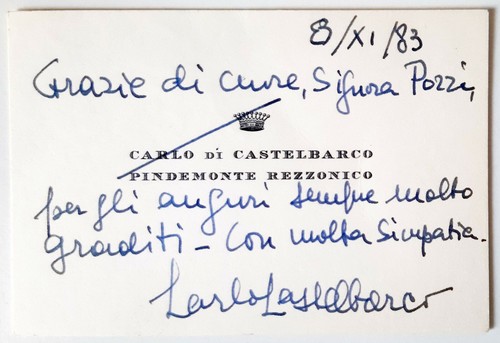 8/XI/83
Grazie di cuore, Signora Pozzi,
CARLO DI CASTELBARCO
PINDEMONTE REZZONICO
per gli auguri sempre molto
graditi - Con molta Simpatia.
Carlo Castelbarco